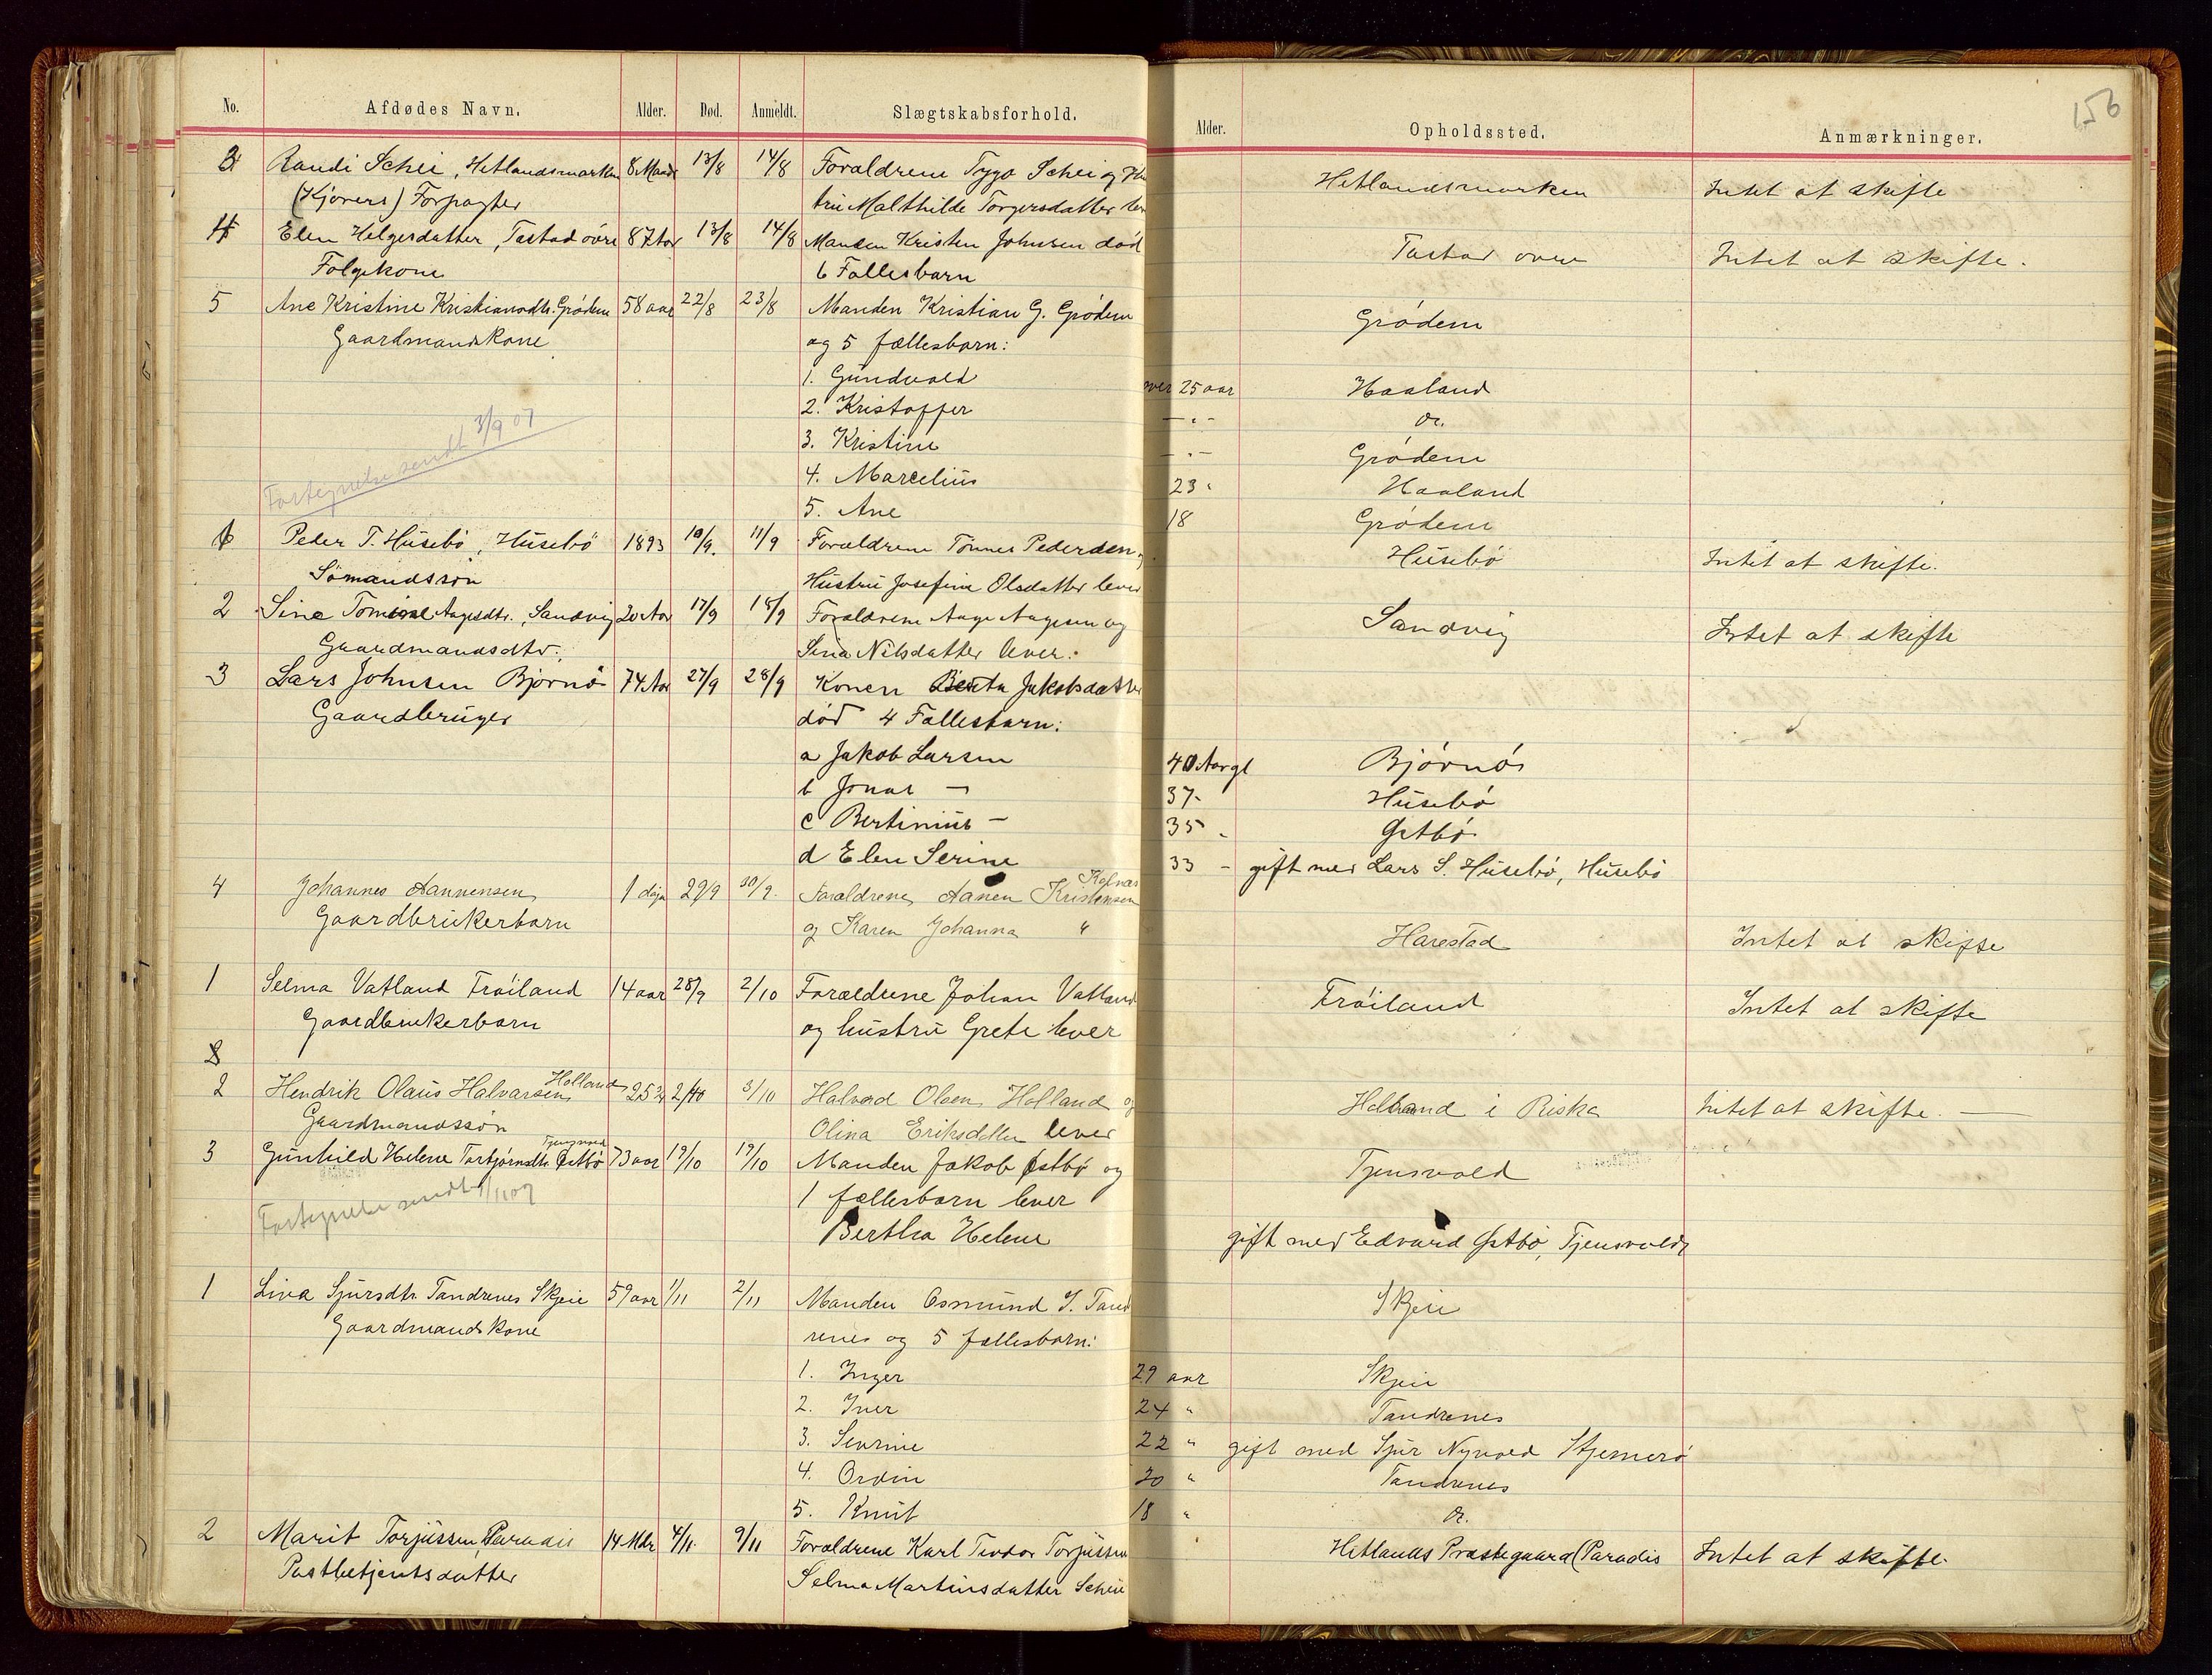 No. Afdødes Navn. Alder. Død. Anmeldt. Slægtskabsforhold. Alder. Opholdssted. Anmærkninger. 156
3 Randi Schei, Hetlandsmarken 8 Maan 13/8 14/8 Forældrene Tygo Schei og Hu Hetlandsmarken Intet at skifte
(Kjørers) Forpagter tru Malthilde Torgersdatter lev
4 Elen Helgesdatter, Tastad øvre 87 Aar 13/8 14/8 Manden Kristen Johnsen død Tastad øvre Intet at skifte.
Folgekone 6 Fællesbarn
5 Ane Kristine Kristiansdtr. Grødem 58 aar 22/8 23/8 Manden Kristian G. Grødem Grødem
Gaardmandskone og 5 fællesbarn:
1. Gundvald over 25 aar Haaland
2. Kristoffer — " — do.
3. Kristine — " — Grødem
4. Marcelius 23 " Haaland
5. Ane 18 Grødem
Fortegnelse sendt 3/9 07
1 Peder T. Husebø, Husebø 1893 10/9. 11/9 Forældrene Tønnes Pedersen og Husebø Intet at skifte.
Sømandssøn Hustru Josefine Olsdatter lever
2 Sina Tomine Aagesdtr., Sandvig 20 Aar 17/9 18/9 Forældrene Aage Aagesen og Sandvig Intet at skifte
Gaardmandsdtr. Sina Nilsdatter lever.
3 Lars Johnsen Bjørnø 74 Aar 27/9 28/9 Konen Berta Jakobsdatter
Gaardbruger død 4 Fællesbarn:
a Jakob Larsen 40 Aar gl Bjørnø
b Jonas — 37 - Husebø
c Bertinius — 35 - Østbø
d Elen Serine 33 - gift med Lars S. Husebø, Husebø
4 Johannes Aannensen 1 dag 29/9 30/9. Forældrene Aanen Kristensen Harestad Intet at skifte
Gaardbrukerbarn og Karen Johanna "
1 Selma Vatland Frøiland 14 aar 28/9 2/10 Forældrene Johan Vatland Frøiland Intet at skifte
Gaardbrukerbarn og hustru Grete lever
2 Hendrik Olaus Halvarsen Holland 25 2/10 3/10 Halvard Olsen Holland og Holland i Riska Intet at skifte. —
Gaardmandssøn Olina Eriksdatter lever
3 Gunhild Helene Torbjørnsdtr. Østbø Tjensvold 73 aar 17/10 19/10 Manden Jakob Østbø og Tjensvold
Fortegnelse sendt 1/11 07 1 fællesbarn lever
Bertha Helene gift med Edvard Østbø, Tjensvold
1 Lina Sjursdtr. Tandrenes Skjeie 59 aar 1/11 2/11 Manden Osmund I. Tand Skjeie
Gaardmandskone renes og 5 fællesbarn:
1. Inger 29 aar Skjeie
2. Iver 24 " Tandrenes
3. Sevrine 22 " gift med Sjur Nyvold Stjernerø
4. Ordin 20 " Tandrenes
5. Knut 18 " do.
2 Marit Torjussen, Paradis 14 Mdr 4/11 9/11 Forældrene Karl Tevdor Torjussen Hetlands Prestegaard (Paradis Intet at skifte.
Postbetjentsdatter Selma Martinsdatter Scheie